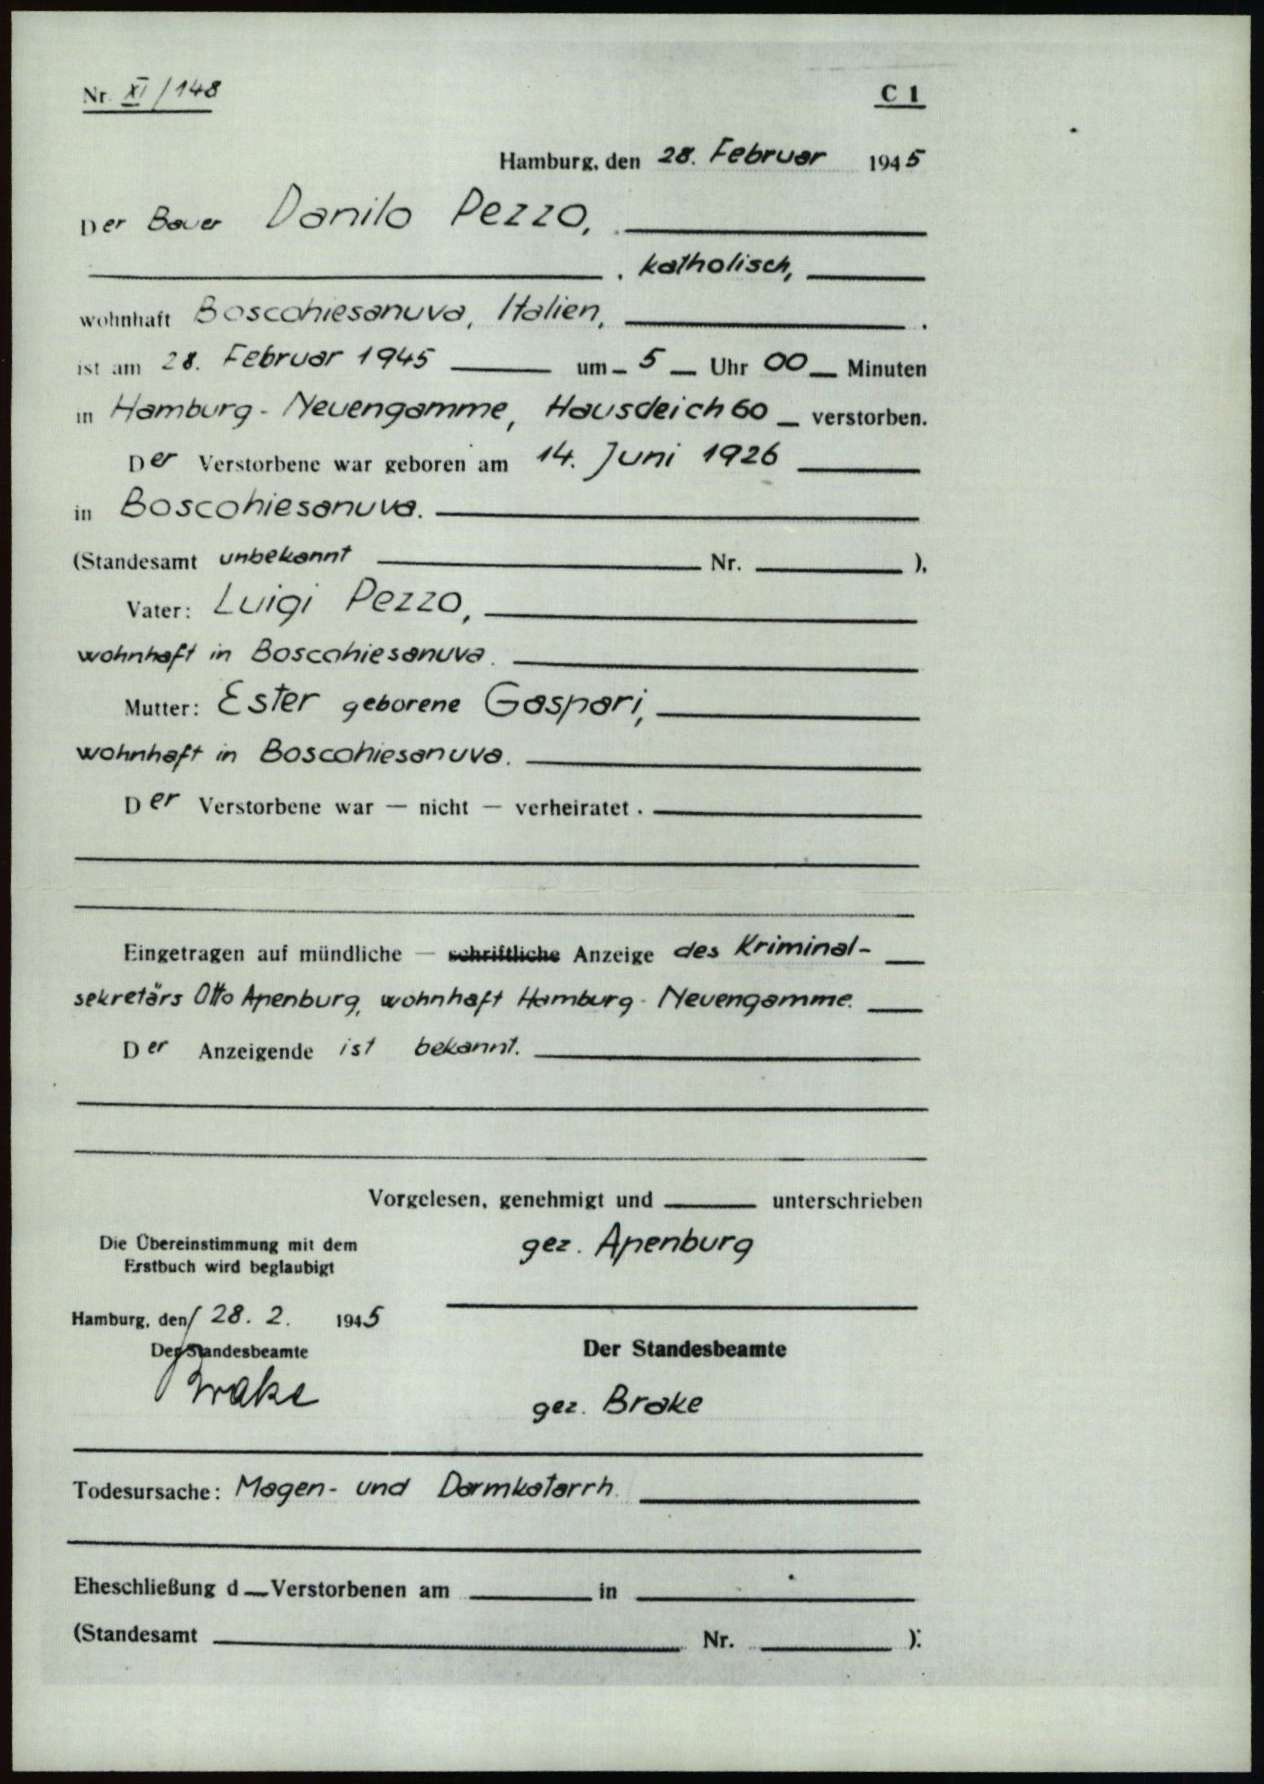 Nr. XI/148
C 1
Hamburg, den 28. Februar 1945
Der Bauer Danilo Pezzo,
, katholisch,
wohnhaft Boscohiesanuva, Italien, .
ist am 28. Februar 1945 um 5 Uhr 00 Minuten
in Hamburg-Neuengamme, Hausdeich 60 verstorben.
Der Verstorbene war geboren am 14. Juni 1926
in Boscohiesanuva.
(Standesamt unbekannt Nr. ),
Vater: Luigi Pezzo,
wohnhaft in Boscohiesanuva.
Mutter: Ester geborene Gaspari,
wohnhaft in Boscohiesanuva.
Der Verstorbene war — nicht — verheiratet.
Eingetragen auf mündliche — schriftliche Anzeige des Kriminal-
sekretärs Otto Apenburg, wohnhaft Hamburg-Neuengamme.
Der Anzeigende ist bekannt.
Vorgelesen, genehmigt und unterschrieben
gez. Apenburg
Die Übereinstimmung mit dem
Erstbuch wird beglaubigt
Hamburg, den 28. 2. 1945
Der Standesbeamte
Brake
Der Standesbeamte
gez. Brake
Todesursache: Magen- und Darmkatarrh.
Eheschließung d Verstorbenen am in
(Standesamt Nr. ):